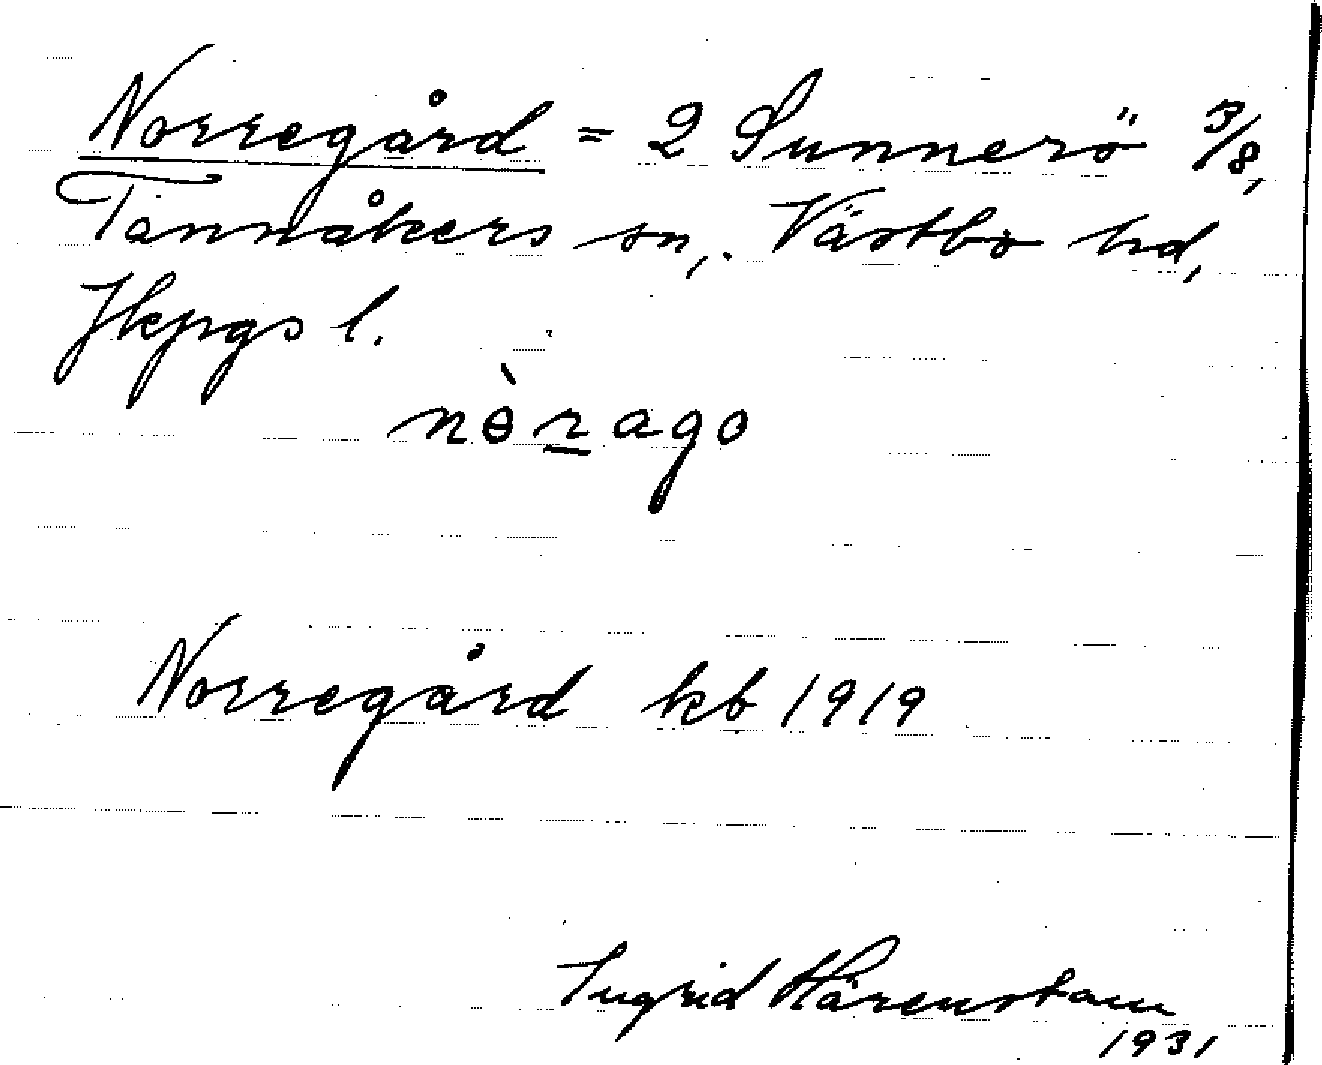 Norregård = 2 Sunnerö 3/8,
Tannåkers sn,. Västbo hd,
Jkpgs l.
nɵ̀r̲ago
Norregård kb 1919
Ingrid Härenstam
1931